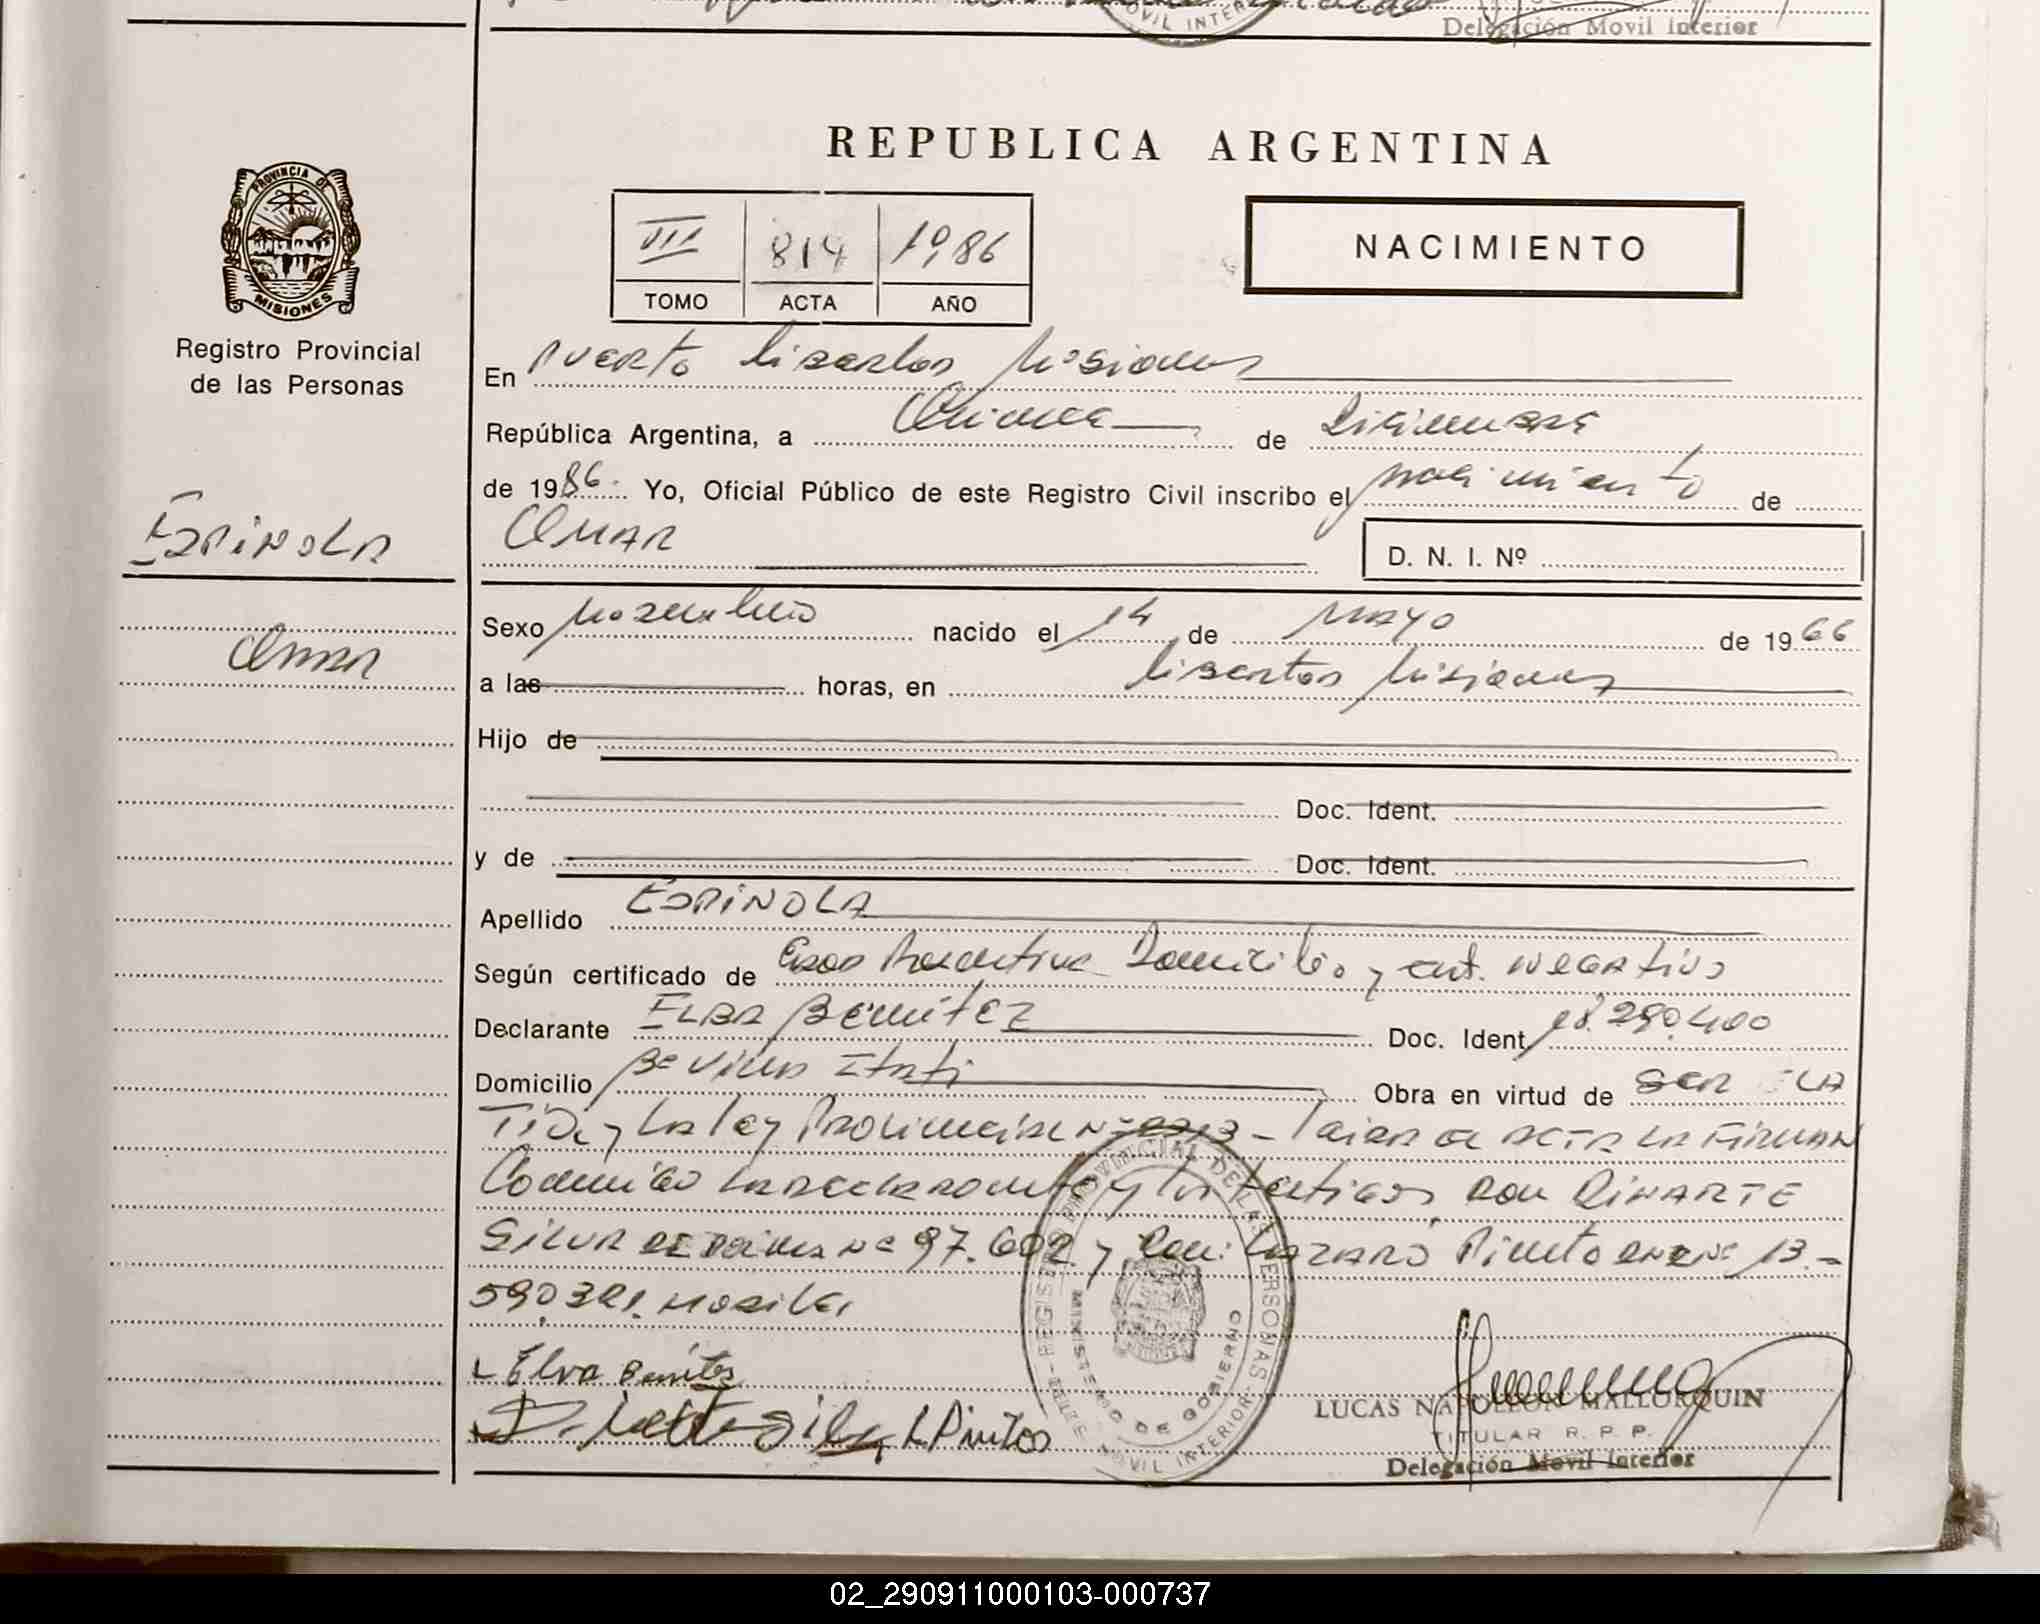 Delegación Movil Interior
REPUBLICA ARGENTINA
PROVINCIA DE
MISIONES
Registro Provincial
de las Personas
VII 814 1986
TOMO ACTA AÑO
NACIMIENTO
En Puerto Libertad Misiones
República Argentina, a Quince de Diciembre
de 1986. Yo, Oficial Público de este Registro Civil inscribo el nacimiento de
Omar
D. N. I. Nº
ESPINOLA
Omar
Sexo Masculino nacido el 14 de MAYO de 1966
a las horas, en Libertad Misiones
Hijo de
Doc. Ident.
y de Doc. Ident.
Apellido ESPINOLA
Según certificado de Edad Domicilio y cert. NEGATIVO
Declarante ELBA BENITEZ Doc. Ident. 18.290.400
Domicilio Bº Villa Itati Obra en virtud de SER
y la Ley Provincial Nº Leida el ACTA LA FIRMAN
Conmigo la declarante y los testigos don DINARTE
SILVA 97.602 y Don: LAZARO Pinto 13.-
590.391.
Elva Benitez
Silva L Pintos
REGISTRO PROVINCIAL DE LAS PERSONAS
MINISTERIO DE GOBIERNO
MOVIL INTERIOR
LUCAS NAPOLEON MALLORQUIN
TITULAR R. P. P.
Delegación Movil Interior
02_290911000103-000737